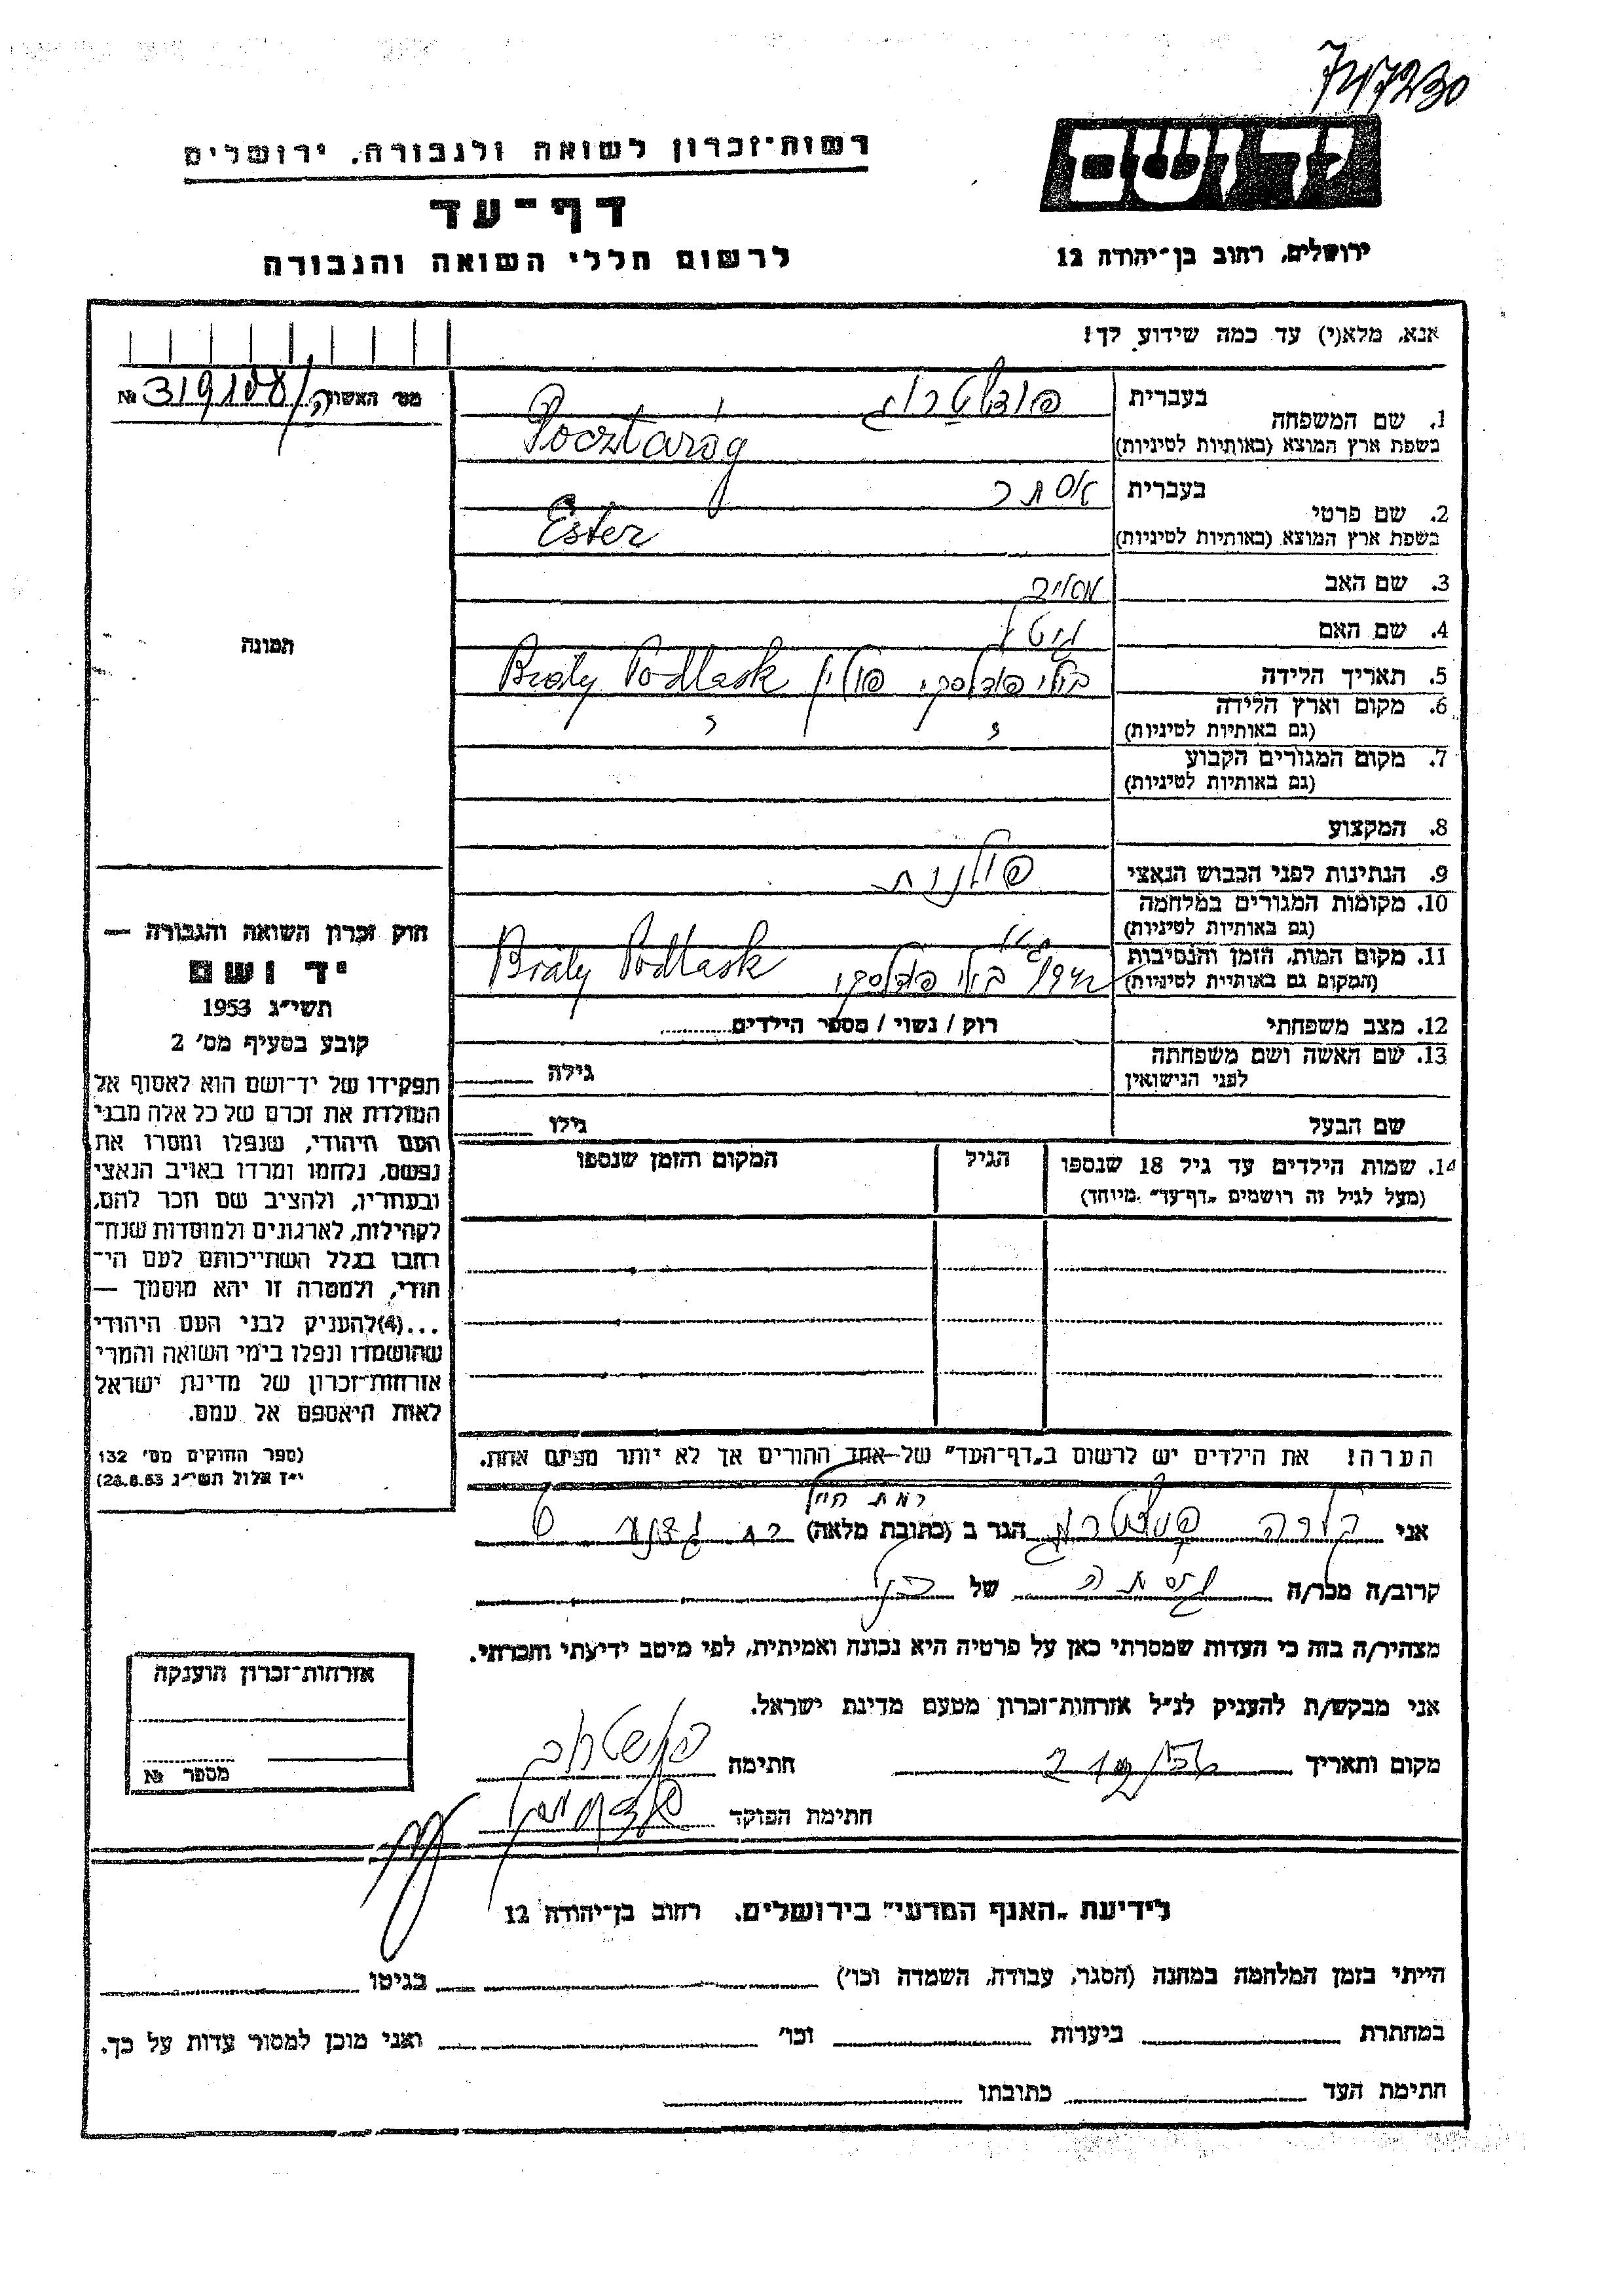 רשות־זכרון לשואה ולגבורה, ירושלים
דף־עד
לרשום חללי השואה והגבורה
יד ושם
ירושלים, רחוב בן־יהודה 12
אנא, מלא(י) עד כמה שידוע לך!
מס׳ האשור
№ 319108
1. שם המשפחה
בעברית
בשפת ארץ המוצא (באותיות לטיניות)
Pocztaróg
2. שם פרטי
בעברית אסתר
בשפת ארץ המוצא (באותיות לטיניות)
Ester
3. שם האב מאיר
4. שם האם גיטל
5. תאריך הלידה
6. מקום וארץ הלידה
(גם באותיות לטיניות)
פולין Biały Podlask
7. מקום המגורים הקבוע
(גם באותיות לטיניות)
8. המקצוע
9. הנתינות לפני הכבוש הנאצי פולנית
10. מקומות המגורים במלחמה
(גם באותיות לטיניות)
11. מקום המות, הזמן והנסיבות
(המקום גם באותיות לטיניות)
Biały Podlask
12. מצב משפחתי רוק / נשוי / מספר הילדים
13. שם האשה ושם משפחתה
לפני הנישואין
גילה
שם הבעל גילו
14. שמות הילדים עד גיל 18 שנספו
(מעל לגיל זה רושמים „דף־עד” מיוחד)
הגיל
המקום והזמן שנספו
הערה! את הילדים יש לרשום ב„דף־העד” של אחד ההורים אך לא יותר מפעם אחת.
תמונה
חוק זכרון השואה והגבורה —
יד ושם
תשי״ג 1953
קובע בסעיף מס׳ 2
תפקידו של יד־ושם הוא לאסוף אל
המולדת את זכרם של כל אלה מבני
העם היהודי, שנפלו ומסרו את
נפשם, נלחמו ומרדו באויב הנאצי
ובעוזריו, ולהציב שם וזכר להם,
לקהילות, לארגונים ולמוסדות שנח־
רבו בגלל השתייכותם לעם הי־
הודי, ולמטרה זו יהא מוסמך —
...(4) להעניק לבני העם היהודי
שהושמדו ונפלו בימי השואה והמרי
אזרחות־זכרון של מדינת ישראל
לאות היאספם אל עמם.
(ספר החוקים מס׳ 132
י״ז אלול תשי״ג 28.8.53)
אני הגר ב (כתובת מלאה)
קרוב/ה מכר/ה של
מצהיר/ה בזה כי העדות שמסרתי כאן על פרטיה היא נכונה ואמיתית, לפי מיטב ידיעתי והכרתי.
אני מבקש/ת להעניק לנ״ל אזרחות־זכרון מטעם מדינת ישראל.
מקום ותאריך חתימה
חתימת הפוקד
אזרחות־זכרון הוענקה
מספר №
לידיעת „האגף המדעי” בירושלים, רחוב בן־יהודה 12
הייתי בזמן המלחמה במחנה (הסגר, עבודה, השמדה וכו׳) בגיטו
במחתרת ביערות וכו׳ ואני מוכן למסור עדות על כך.
חתימת העד כתובתו